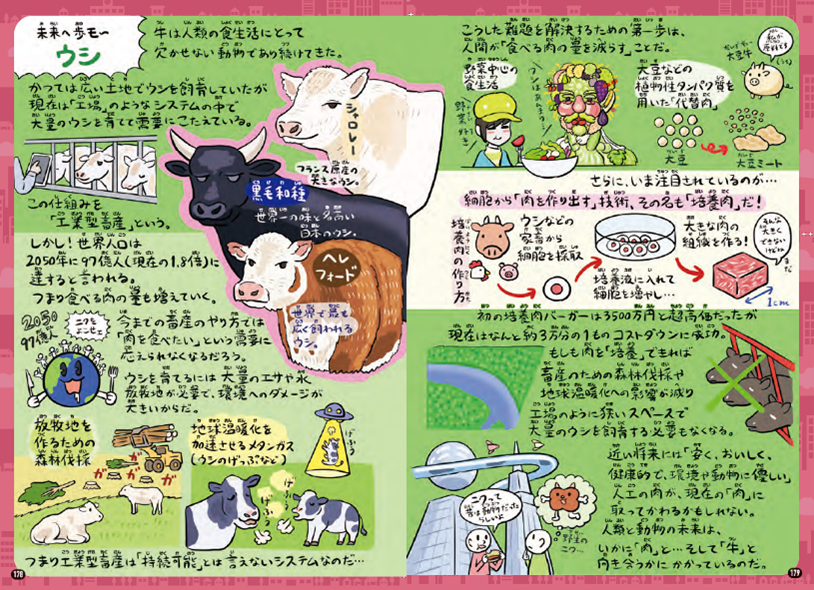 未来へ歩モ〜
ウシ
牛は人類の食生活にとって
欠かせない動物であり続けてきた。
かつては広い土地でウシを飼育していたが
現在は「工場」のようなシステムの中で
大量のウシを育てて需要にこたえている。
この仕組みを
「工業型畜産」という。
シャロレー
フランス原産の
大きなウシ。
黒毛和種
世界一の味と名高い
日本のウシ。
ヘレ
フォード
世界で最も
広く飼われる
ウシ。
しかし!世界人口は
2050年に97億人(現在の1.8倍)に
達すると言われる。
つまり食べる肉の量も増えていく。
2050
97億人
ニクを
よこせェ
今までの畜産のやり方では
「肉を食べたい」という需要に
応えられなくなるだろう。
ウシを育てるには大量のエサや水、
放牧地が必要で、環境へのダメージが
大きいからだ。
放牧地を
作るための
森林伐採
ガ
ガ
ガ
地球温暖化を
加速させるメタンガス
(ウシのげっぷなど)
げふぅ
つまり工業型畜産は「持続可能」とは言えないシステムなのだ…
178
こうした難題を解決するための第一歩は、
人間が「食べる肉の量を減らす」ことだ。
野菜中心の
食生活
野菜好き
大豆などの
植物性タンパク質を
用いた「代替肉」
大豆牛
私が
原料です
大豆
大豆ミート
さらに、いま注目されているのが…
細胞から「肉を作り出す」技術、その名も「培養肉」だ!
培養肉の作り方
ウシなどの
家畜から
細胞を採取
培養液に入れて
細胞を増やし…
大きな肉の
組織を作る!
そんな
大きく
できない
けどね
まだ
1cm
初の培養肉バーガーは3500万円と超高価だったが
現在はなんと約3万分の1ものコストダウンに成功。
もしも肉を「培養」できれば
畜産のための森林伐採や
地球温暖化への影響が減り
工場のように狭いスペースで
大量のウシを飼育する必要もなくなる。
近い将来には「安く、おいしく、
健康的で、環境や動物に優しい」
人工の肉が、現在の「肉」に
取ってかわるかもしれない。
人類と動物の未来は、
いかに「肉」と…そして「牛」と
向き合うかにかかっているのだ。
ニクって
昔は動物だった
らしいよ
野生の
ニク…
179